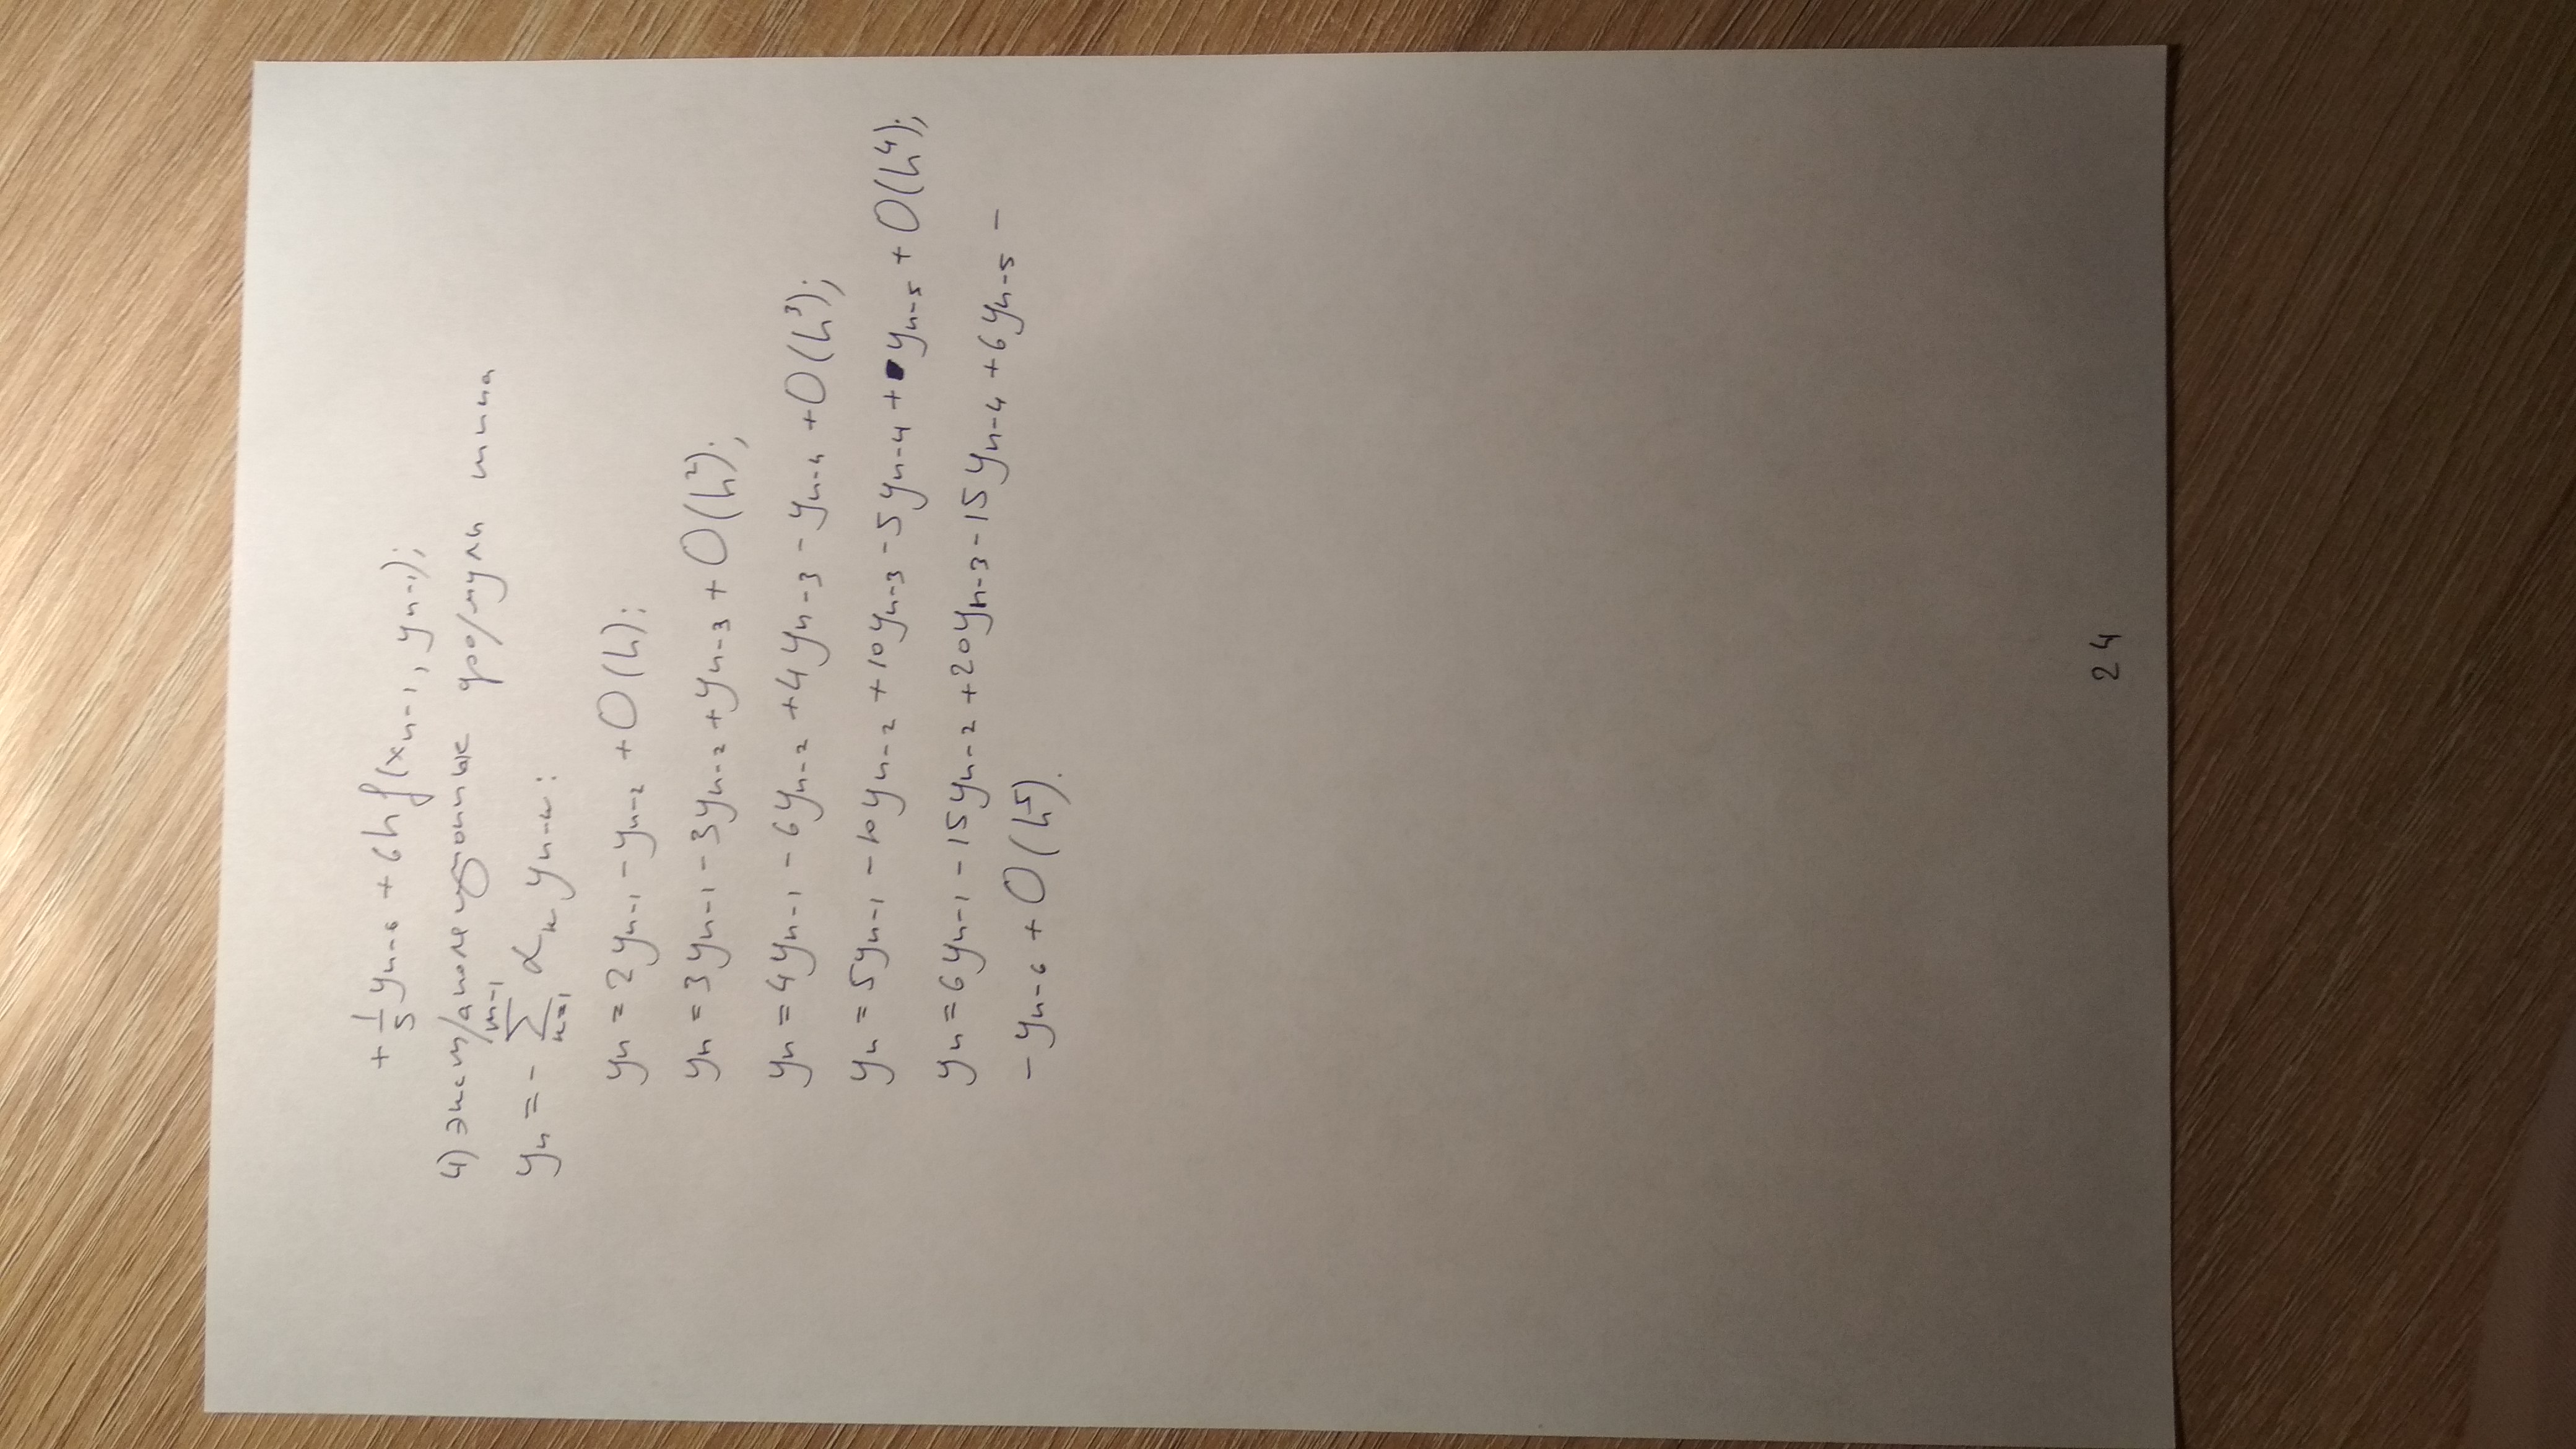 + 1/5 yₙ₋₆ + 6h f(xₙ₋₁, yₙ₋₁);
4) экстраполяционные формулы типа
yₙ = - ∑_{k=1}^{m-1} αₖ yₙ₋ₖ:
yₙ = 2yₙ₋₁ - yₙ₋₂ + O(h);
yₙ = 3yₙ₋₁ - 3yₙ₋₂ + yₙ₋₃ + O(h²);
yₙ = 4yₙ₋₁ - 6yₙ₋₂ + 4yₙ₋₃ - yₙ₋₄ + O(h³);
yₙ = 5yₙ₋₁ - 10yₙ₋₂ + 10yₙ₋₃ - 5yₙ₋₄ + yₙ₋₅ + O(h⁴);
yₙ = 6yₙ₋₁ - 15yₙ₋₂ + 20yₙ₋₃ - 15yₙ₋₄ + 6yₙ₋₅ -
- yₙ₋₆ + O(h⁵).
24